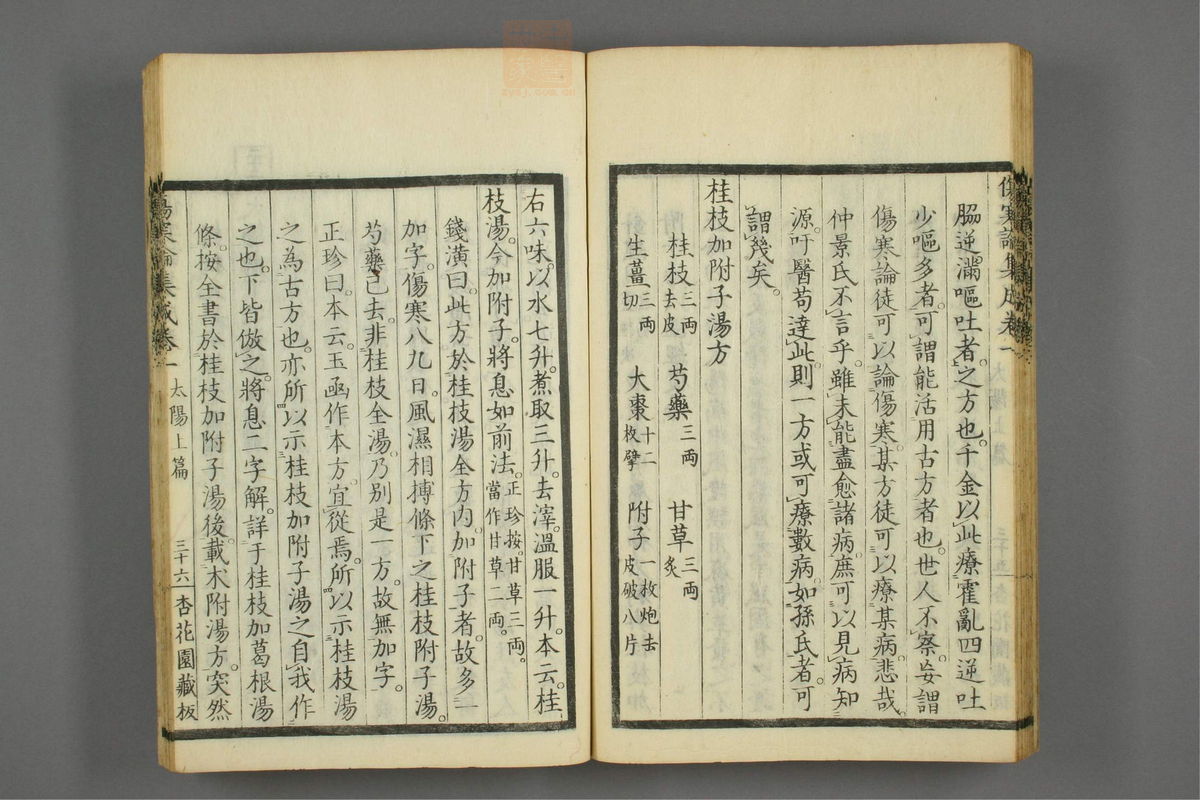 傷寒論集成卷一
脇逆滿嘔吐者之方也。千金以此療霍亂四逆吐
少嘔多者。可謂能活用古方者也。世人不察。妄謂
傷寒論徒可以論傷寒。某方徒可以療某病。悲哉。
仲景氏不言乎。雖未能盡愈諸病。庶可以見病知
源。吁醫苟達此。則一方或可療數病。如孫氏者。可
謂幾矣。
桂枝加附子湯方
桂枝三兩去皮 芍藥三兩 甘草三兩炙
生薑三兩切 大棗十二枚擘 附子一枚炮去皮破八片
右六味。以水七升。煮取三升。去滓。溫服一升。本云。桂
枝湯。今加附子。將息如前法。正珍按。甘草三兩。當作甘草二兩。
錢潢曰。此方於桂枝湯全方內。加附子者。故多一
加字。傷寒八九日。風濕相搏條下之桂枝附子湯。
芍藥已去。非桂枝全湯。乃別是一方。故無加字。
正珍曰。本云。玉函作本方。宜從焉。所以示桂枝湯
之為古方也。亦所以示桂枝加附子湯之自我作
之也。下皆倣之。將息二字解。詳于桂枝加葛根湯
條。按全書於桂枝加附子湯後。載朮附湯方。突然
傷寒論集成卷一
太陽上篇
三十六
杏花園藏板